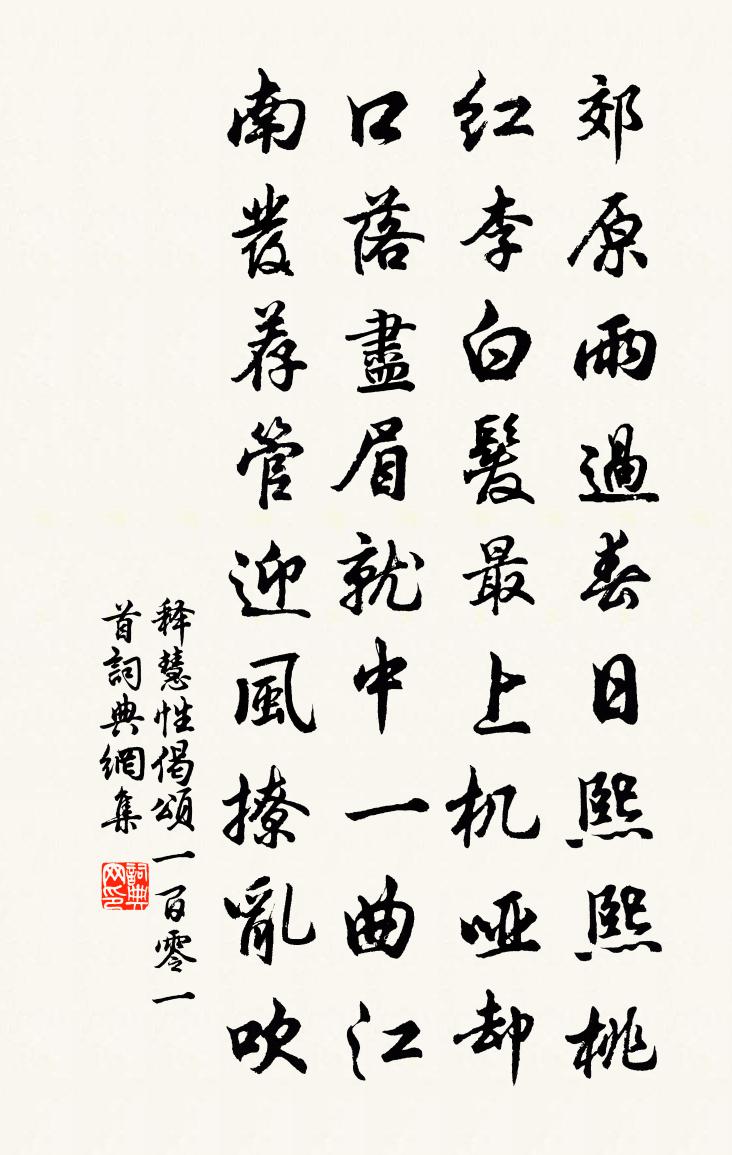 郊原雨過春日熙熙桃
红李白髮最上机啞却
口落盡眉就中一曲江
南發荐管迎風撩亂吹
释慧性偈頌一百零一
首詞典網集
詞典
网印